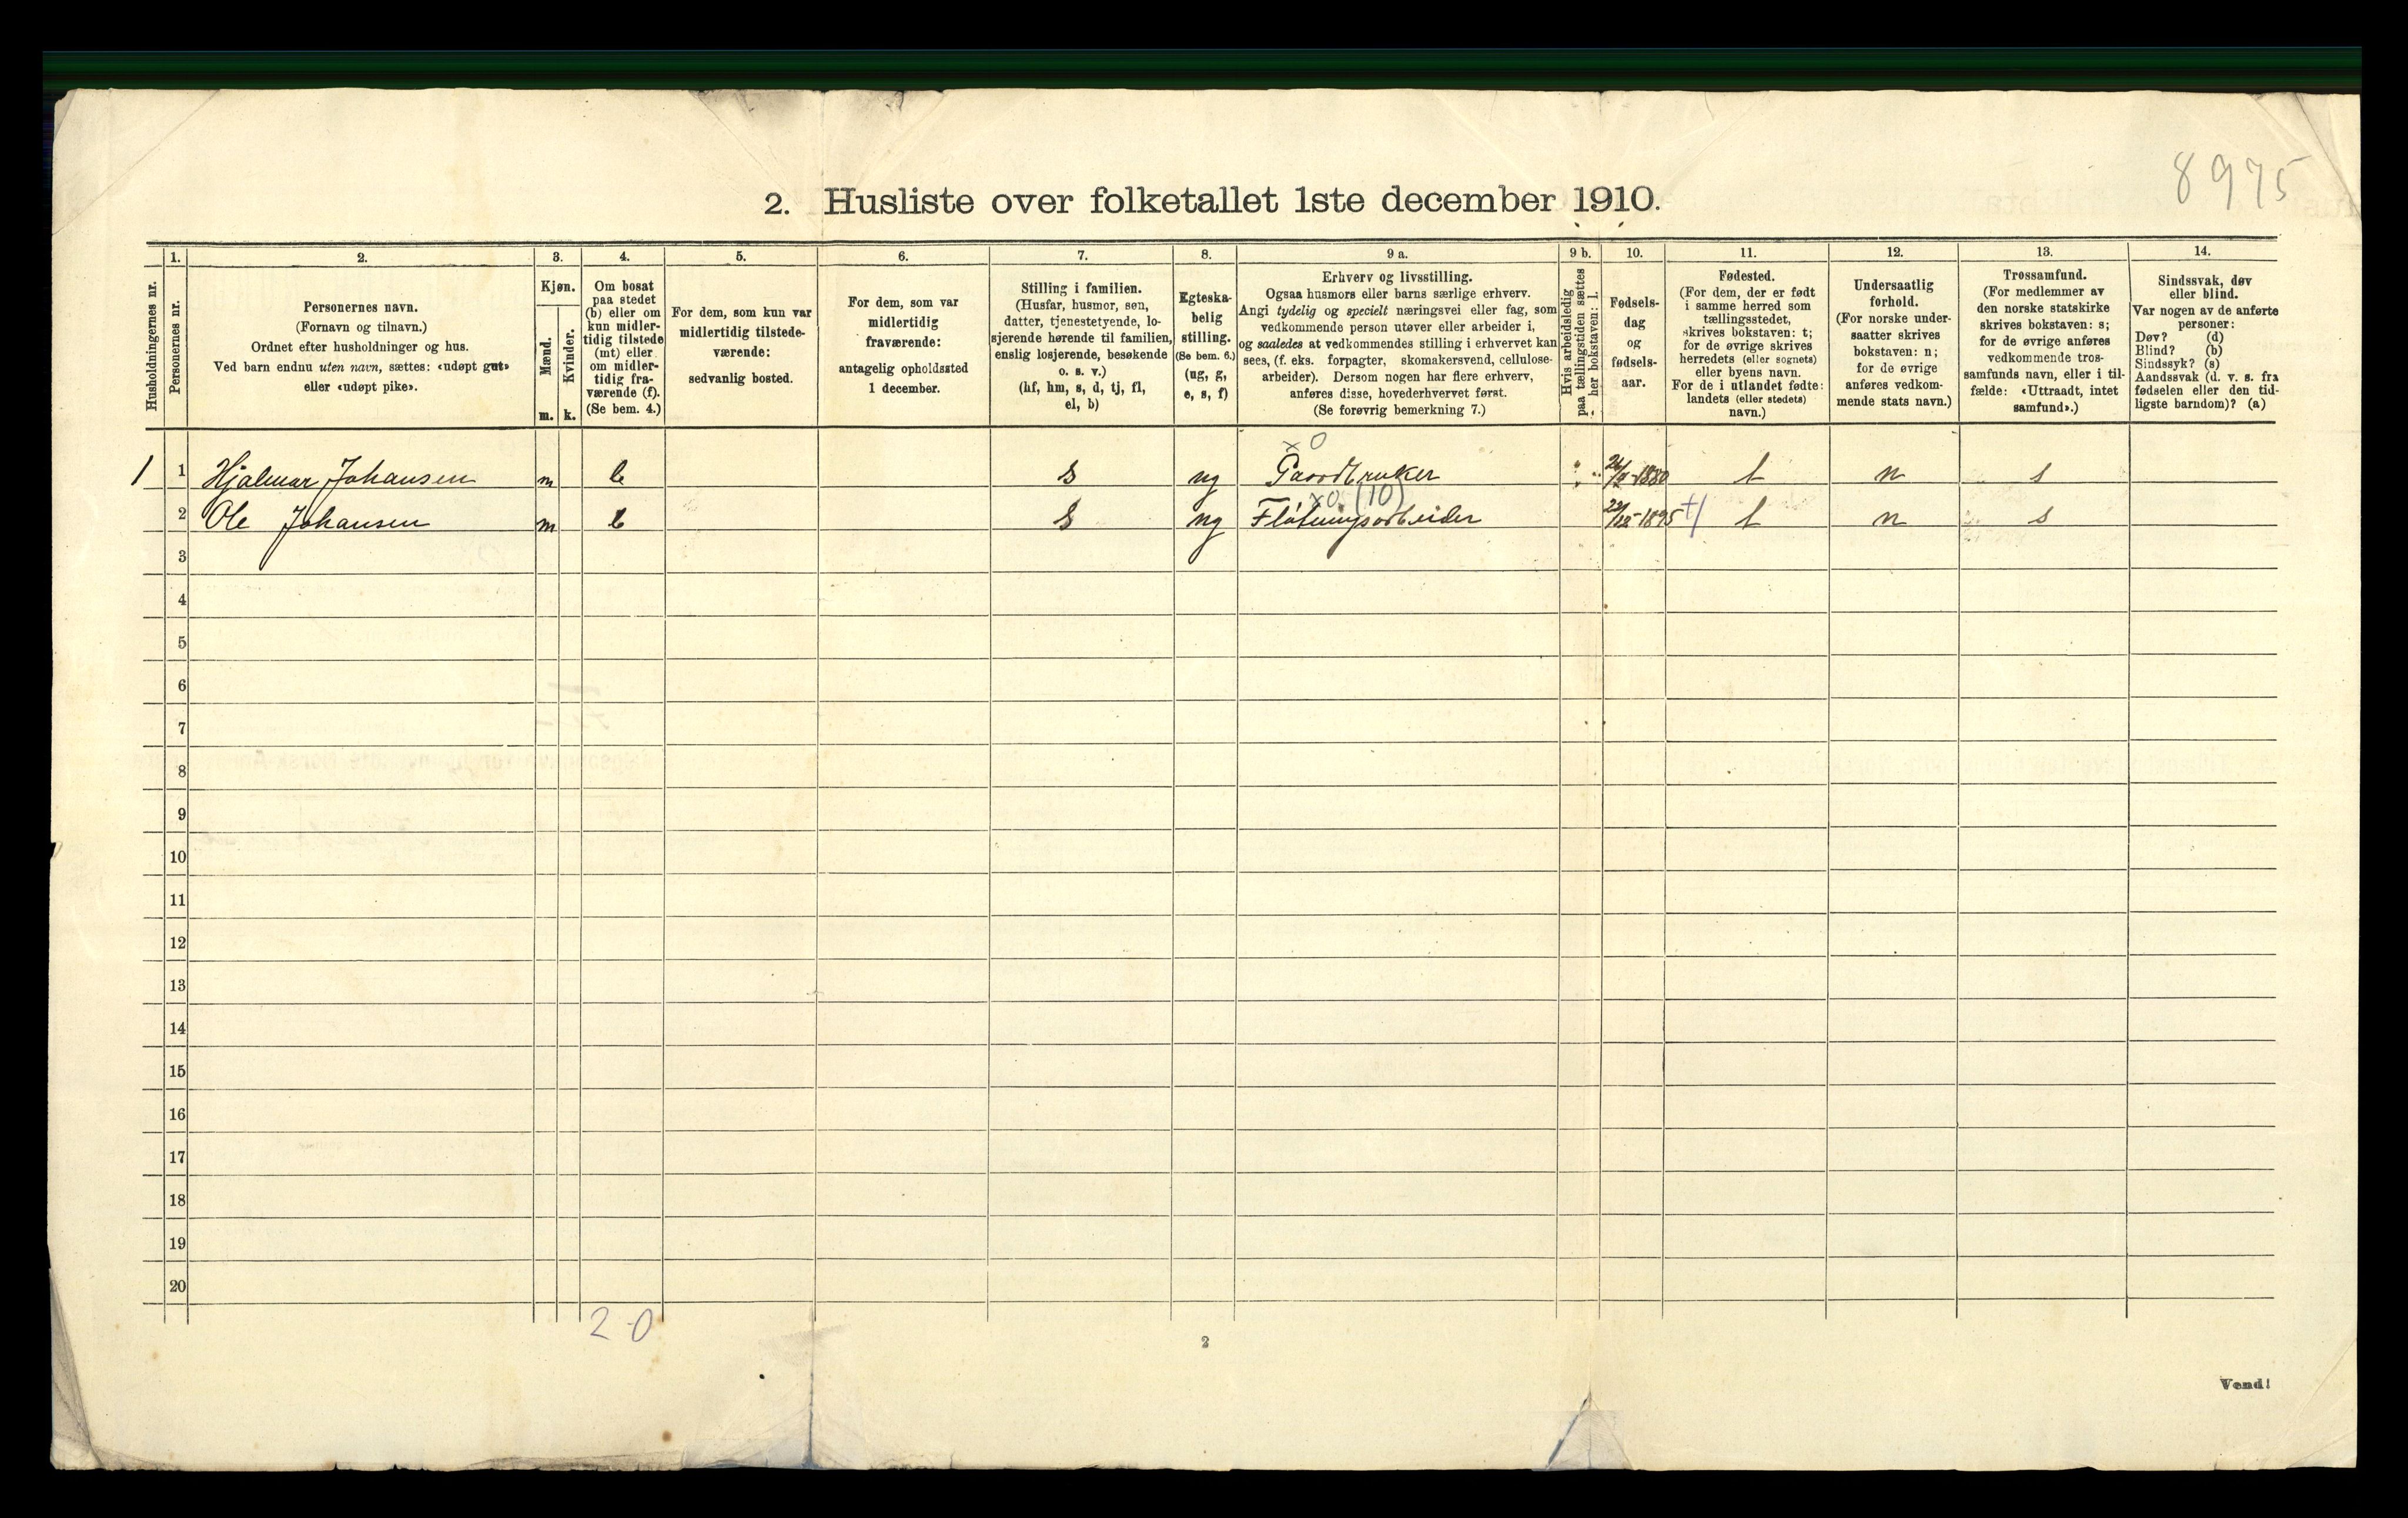 8975
2. Husliste over folketallet 1ste december 1910.
Husholdningernes nr.
1.
Personernes nr.
2.
Personernes navn.
(Fornavn og tilnavn.)
Ordnet efter husholdninger og hus.
Ved barn endnu uten navn, sættes: «udøpt gut»
eller «udøpt pike».
3.
Kjøn.
Mænd.
Kvinder.
m. k.
4.
Om bosat
paa stedet
(b) eller om
kun midler-
tidig tilstede
(mt) eller
om midler-
tidig fra-
værende (f).
(Se bem. 4.)
5.
For dem, som kun var
midlertidig tilstede-
værende:
sedvanlig bosted.
6.
For dem, som var
midlertidig
fraværende:
antagelig opholdssted
1 december.
7.
Stilling i familien.
(Husfar, husmor, søn,
datter, tjenestetyende, lo-
sjerende hørende til familien,
enslig losjerende, besøkende
o. s. v.)
(hf, hm, s, d, tj, fl,
el, b)
8.
Egteska-
belig
stilling.
(Se bem. 6.)
(ug, g,
e, s, f)
9 a.
Erhverv og livsstilling.
Ogsaa husmors eller barns særlige erhverv.
Angi tydelig og specielt næringsvei eller fag, som
vedkommende person utøver eller arbeider i,
og saaledes at vedkommendes stilling i erhvervet kan
sees, (f. eks. forpagter, skomakersvend, cellulose-
arbeider). Dersom nogen har flere erhverv,
anføres disse, hovederhvervet først.
(Se forøvrig bemerkning 7.)
9 b.
Hvis arbeidsledig
paa tællingstiden sættes
her bokstaven: l.
10.
Fødsels-
dag
og
fødsels-
aar.
11.
Fødested.
(For dem, der er født
i samme herred som
tællingsstedet,
skrives bokstaven: t;
for de øvrige skrives
herredets (eller sognets)
eller byens navn.
For de i utlandet fødte:
landets (eller stedets)
navn.)
12.
Undersaatlig
forhold.
(For norske under-
saatter skrives
bokstaven: n;
for de øvrige
anføres vedkom-
mende stats navn.)
13.
Trossamfund.
(For medlemmer av
den norske statskirke
skrives bokstaven: s;
for de øvrige anføres
vedkommende tros-
samfunds navn, eller i til-
fælde: «Uttraadt, intet
samfund».)
14.
Sindssvak, døv
eller blind.
Var nogen av de anførte
personer:
Døv? (d)
Blind? (b)
Sindssyk? (s)
Aandssvak (d. v. s. fra
fødselen eller den tid-
ligste barndom)? (a)
x 0
1 1 Hjalmar Johansen m b s ug Gaardbruker 1880 t n s
x0 (10)
2 Ole Johansen m b s ug Fløtningsarbeider 1895 t n s
3
4
5
6
7
8
9
10
11
12
13
14
15
16
17
18
19
20
2 0
2
Vend!